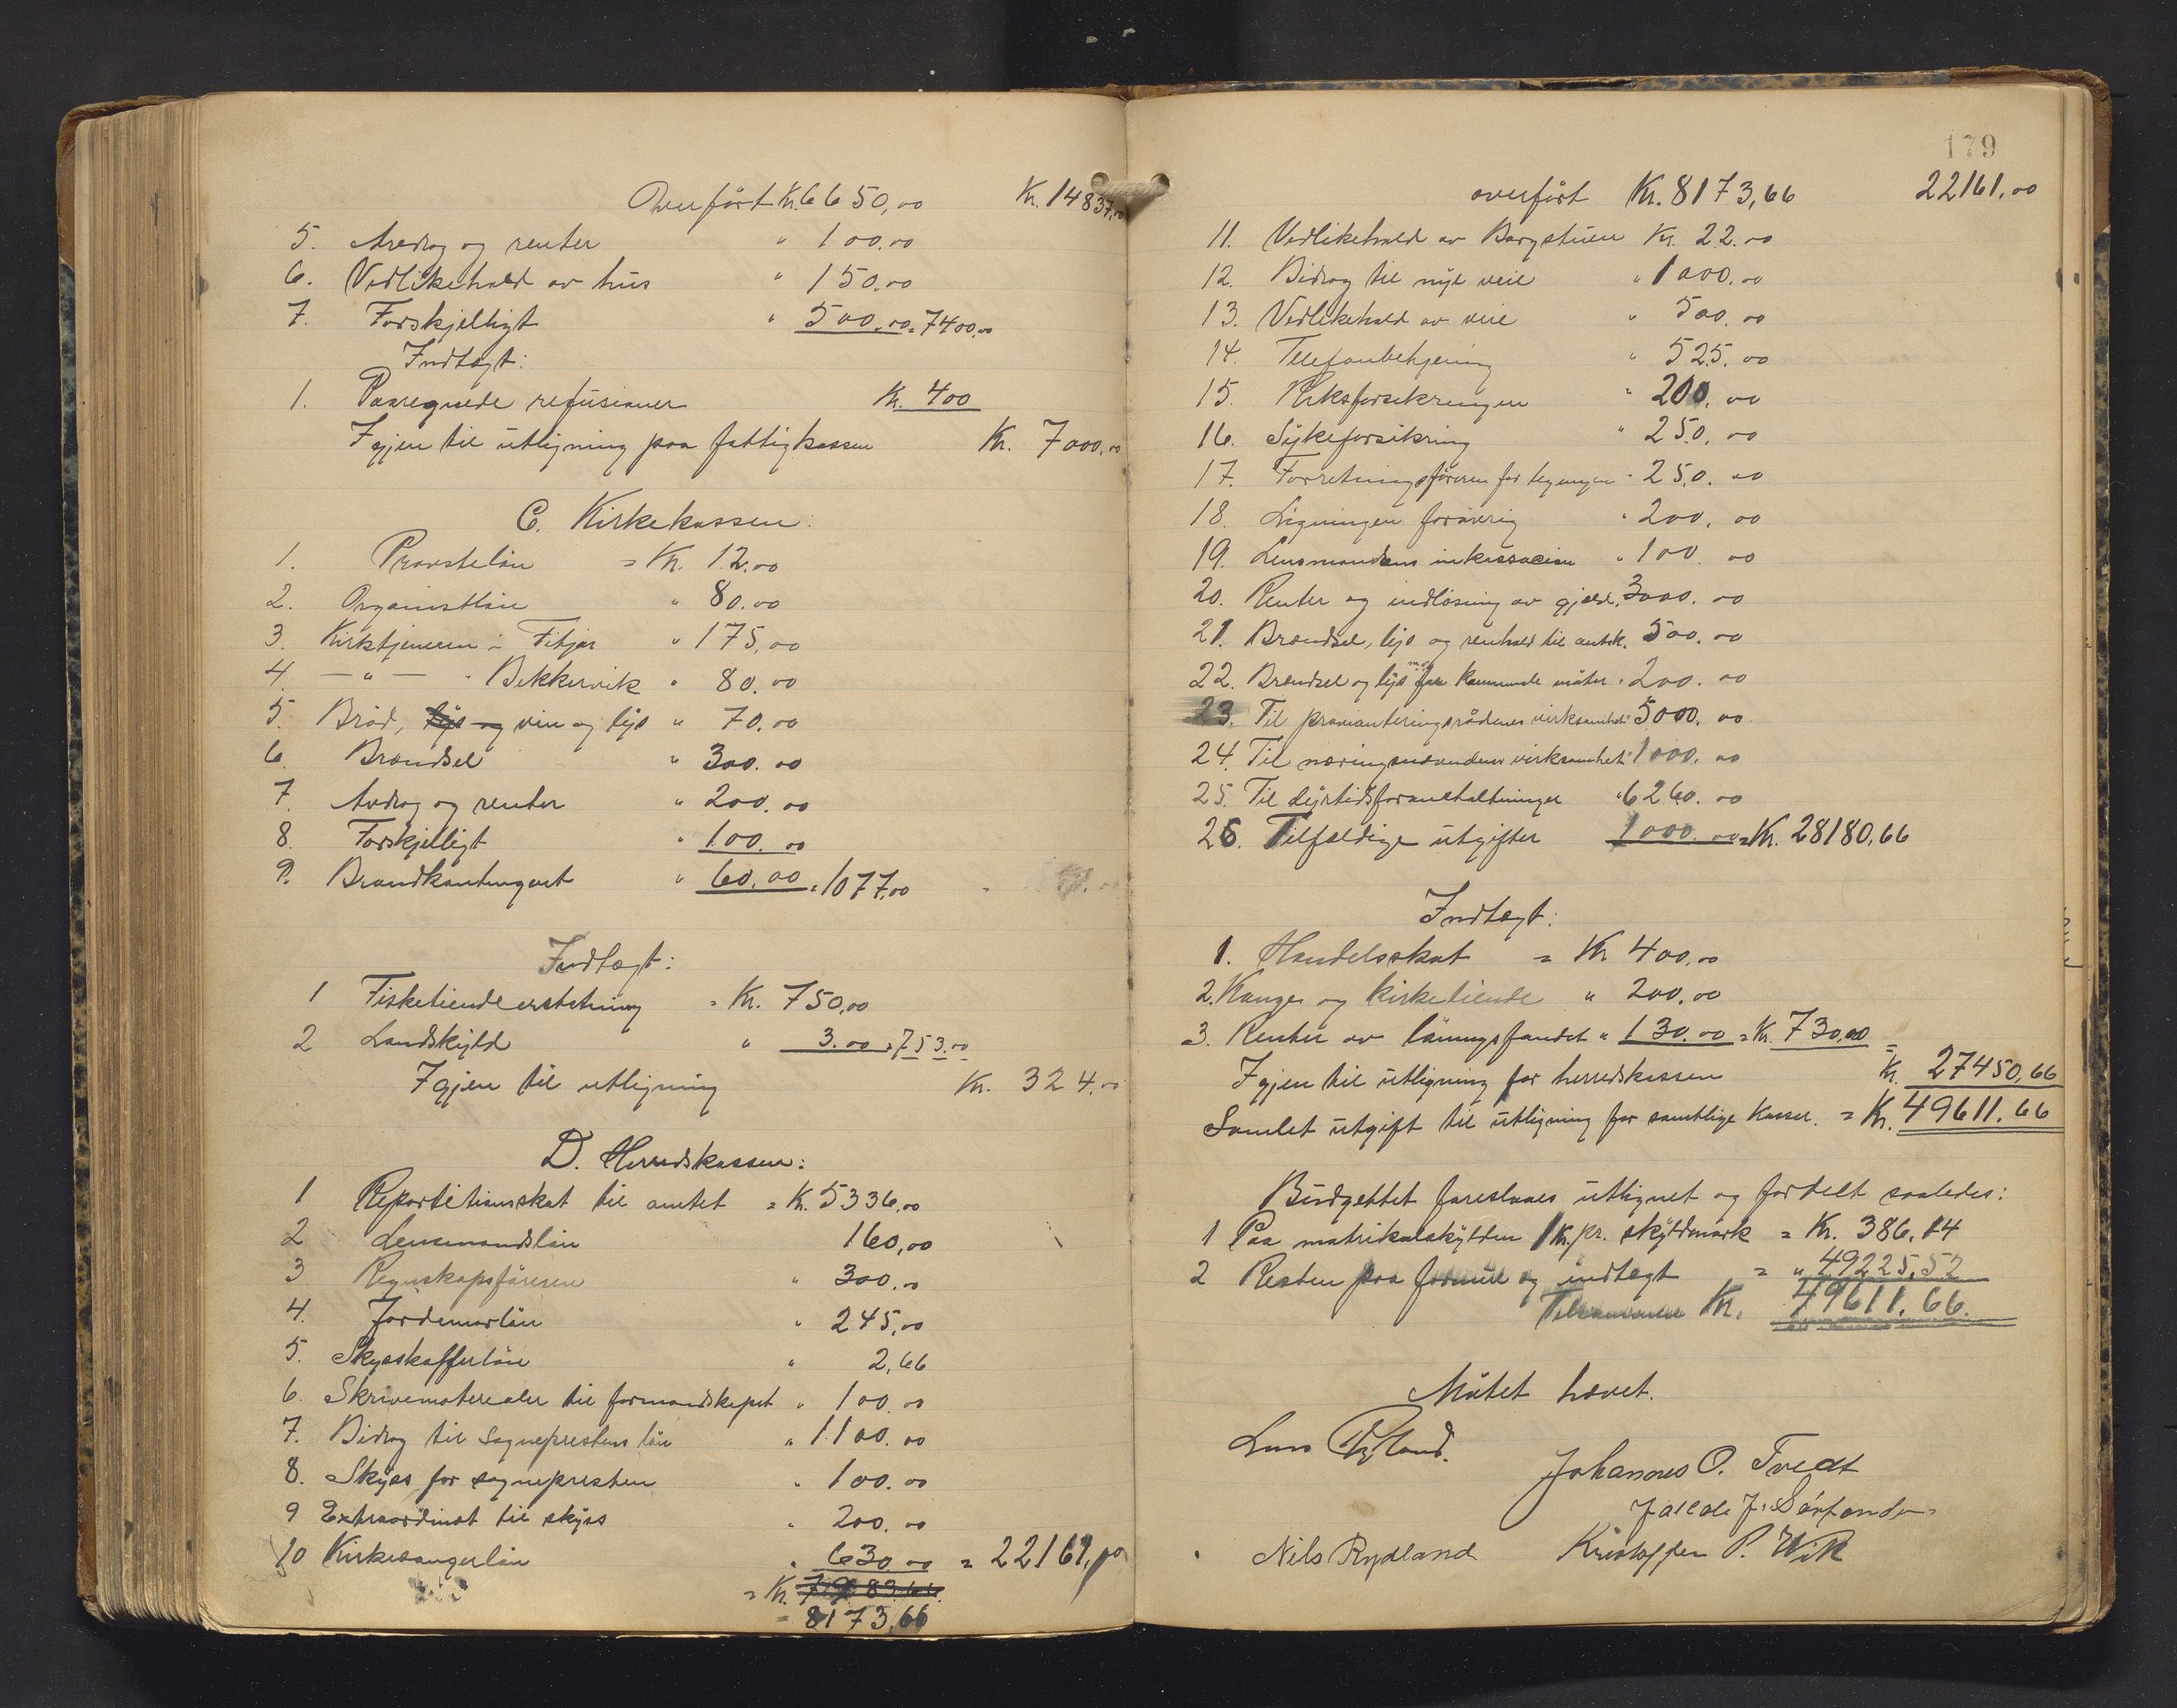 Overført Kr. 6650,00 Kr. 14837,00
5. Avdrag og renter " 100.00
6. Vedlikehold av hus " 150.00
7. Forskjelligt " 500.00 = 7400.00
Indtægt:
1. Paaregnede refusioner Kr. 400
Igjen til utligning paa fattigkassen Kr. 7000.00
C. Kirkekassen:
1. Provstelön = Kr. 12.00
2. Organistlön " 80.00
3. Kirketjeneren i Fitjar " 175,00
4. — " — " Bekkervik " 80.00
5 Bröd, lys og vin og lys " 70.00
6. Brændsel " 300.00
7. Avdrag og renter " 200.00
8. Forskjelligt " 100.00
9. Brandkontingent " 60.00 = 1077,00
Indtægt:
1 Fisketiendeerstatning = Kr. 750,00
2 Landskyld " 3.00 = 753.00
Igjen til utligning Kr. 324.00
D. Herredskassen:
1 Repartitionskat til amtet = Kr. 5336,00
2 Lensmandslön 160,00
3 Regnskapsföreren " 300.00
4. Jordemorlön " 245,00
5. Skysskafferlön " 2,66
6. Skrivematerealer til formandskapet " 100.00
7. Bidrag til sogneprestens lön " 1100.00
8. Skyss for sognepresten " 100.00
9 Extraordinært til skyss " 200.00
10 Kirkesangerlön " 630.00 = 22161,00
= Kr. 7983.66
= 8173,66
179
overfört Kr. 8173,66 22161,00
11. Vedlikehold av Borgstuen Kr. 22.00
12. Bidrag til nye veie " 1000.00
13. Vedlikehold av veie " 500.00
14. Telefonbetjening " 525.00
15. Riksforsikringen " 200.00
16. Sykeforsikring " 250.00
17. Forretningsföreren for " 250.00
18. Ligningen forövrig " 200.00
19. Lensmandens inkassation " 100.00
20. Renter og indlösning av gjæld. 3000.00
21. Brændsel, lys og renhold til 500.00
22. Brændsel og lys m.v. for kommunale möter " 200.00
23. Til provianteringsrådenes virksomhet " 5000.00
24. Til næringsnævndens virksomhet " 1000.00
25. Til dyrtidsforanstaltninger " 6260.00
26. Tilfældige utgifter 1000.00 = Kr. 28180,66
Indtægt:
1. Handelsskat = Kr 400.00
2. Konge og kirketiende " 200.00
3. Renter av låningsfondet " 130.00 = Kr. 730.00 =
Igjen til utligning for herredskassen Kr. 27450,66
Samlet utgift til utligning for samtlige kasser. = Kr. 49611.66
Budgettet foreslaaes utlignet og fordelt saaledes:
1 Paa matrikulskylden 1 Kr. pr. skyldmark = Kr. 386.14
2 Resten paa formue og indtægt = " 49225,52
Tilsammen Kr. 49611,66.
Mötet hævet.
Lars Rydland.
Johannes O. Tvedt
J. Sörfonden
Nils Rydland Kristoffer P. Wik